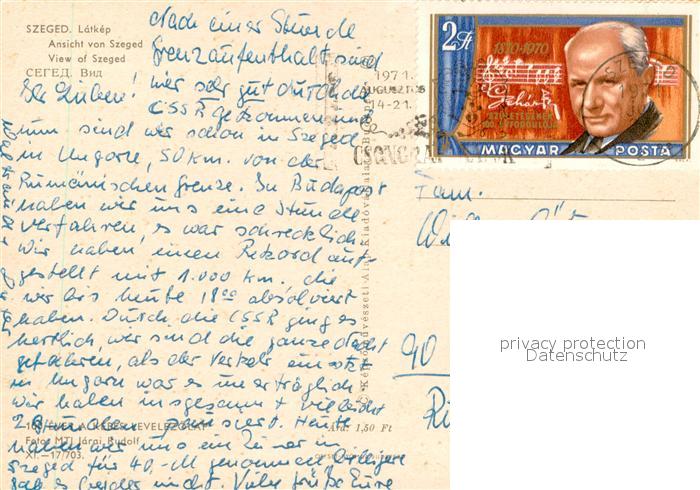 SZEGED. Látkép
Ansicht von Szeged
View of Szeged
СЕГЕД. Вид
Ihr Lieben!
Nach einer Stunde
Grenzaufenthalt sind
wir sehr gut durch die
CSSR gekommen und
nun sind wir schon in Szeged
in Ungarn, 50 km. von der
Rumänischen Grenze. In Budapest
haben wir uns eine Stunde
verfahren, es war schrecklich.
Wir haben einen Rekord auf-
gestellt mit 1.000 km, die
wir bis heute 18 00 absolviert
haben. Durch die CSSR ging es
herrlich, wir sind die ganze Nacht
gefahren, als der Verkehr einsetzte
in Ungarn war es unerträglich
wir haben insgesamt vielleicht
2 Stunden pausiert. Heute
haben wir uns ein Zimmer in
Szeged für 40,-M genommen
gab es leider nicht. Viele Grüße Eure
KÉPES LEVELEZŐLAP
Foto: MTI Járai Rudolf
XI.-17/703.
Ára: 1,50 Ft
Képzőművészeti Alap Kiadóvállalata, Budapest
1971
AUGUSZTUS
14-21.
CSONGRÁD
2 Ft
1870-1970
Lehár F
SZÜLETÉSÉNEK
100. ÉVFORDULÓJA
MAGYAR POSTA
Fam.
90
privacy protection
Datenschutz